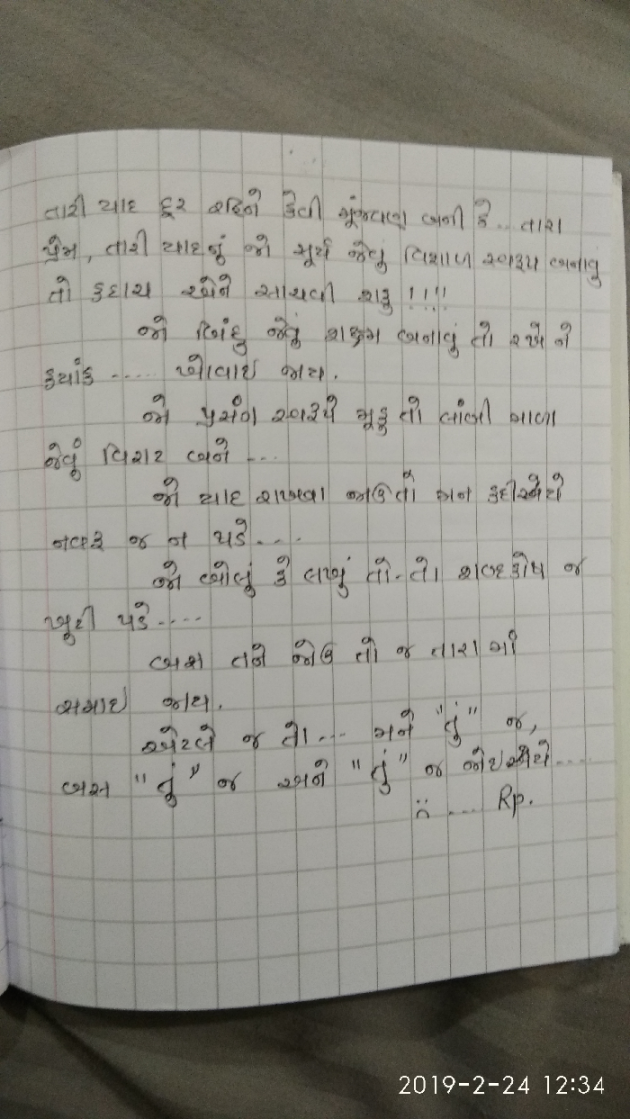 તારી યાદ દુર રહિને કેવી મૂંજવણ બની કે.. તારા
પ્રેમ, તારી યાદનું જો સૂર્ય જેવું વિશાળ સ્વરૂપ બનાવું
તો કદાચ એને સાચવી શકુ !!!!
જો બિંદુ જેવું સુક્ષ્મ બનાવું તો રખે ને
કયાંક ..... ખોવાઇ જાય.
જો પ્રસંગ સ્વરૂપે મૂકુ તો લાંબી ગાથા
જેવું વિરાટ બને ...
જો યાદ રાખવા જાઉ તો મન કદી એને
નવરૂ જ ન પડે....
જો બોલું કે લખું તો-તો શબ્દકોષ જ
ખુટી પડે....
બસ તને જોઉ તો જ તારામાં
સમાઇ જાય.
એટલે જ તો... મને "તું" જ,
બસ "તું" જ અને "તું" જ જોઇએ....
.... Rp.
2019-2-24 12:34